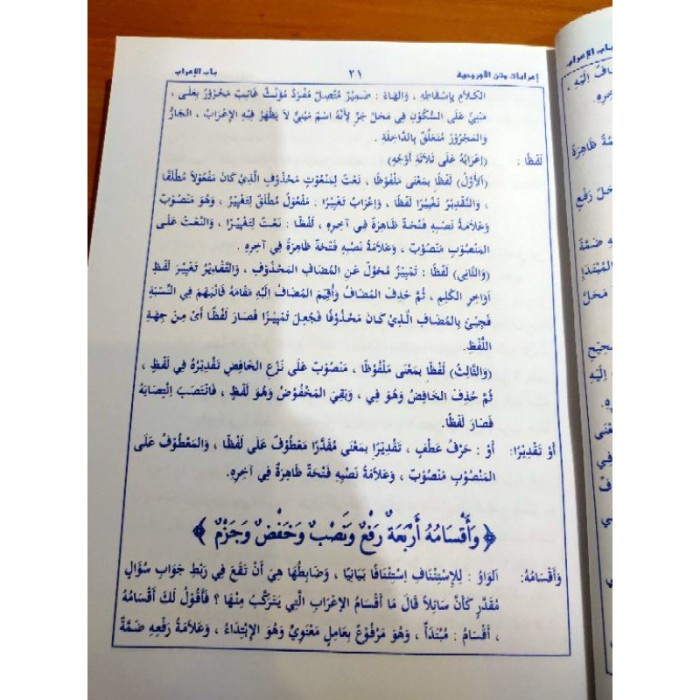 إعرابات متن الآجرومية ٢١ باب الإعراب
الكَلاَمِ بِإِسْقَاطِهِ ، وَالهَاءُ : ضَمِيْرٌ مُتَّصِلٌ مُفْرَدٌ مُؤَنَّثٌ غَائِبٌ مَجْرُوْرٌ بِعَلَى ،
مَبْنِيٌّ عَلَى السُّكُوْنِ فِي مَحَلِّ جَرٍّ لِأَنَّهُ اسْمٌ مَبْنِيٌّ لاَ يَظْهَرُ فِيْهِ الإِعْرَابُ ، الجَارُ
وَالمَجْرُوْرُ مُتَعَلِّقٌ بِالدَّاخِلَةِ.
لَفْظًا : (إِعْرَابُهُ عَلَى ثَلاَثَةِ أَوْجُهٍ)
(اَلأَوَّلُ) لَفْظًا بِمَعْنَى مَلْفُوْظًا ، نَعْتٌ لِمَنْعُوْتٍ مَحْذُوْفٍ الَّذِيْ كَانَ مَفْعُوْلاً مُطْلَقًا
، وَالتَّقْدِيْرُ تَغْيِيْرًا لَفْظًا ، وَإِعْرَابُ تَغْيِيْرًا : مَفْعُوْلٌ مُطْلَقٌ لِتَغْيِيْر ، وَهُوَ مَنْصُوْبٌ
وَعَلاَمَةُ نَصْبِهِ فَتْحَةٌ ظَاهِرَةٌ فِي آخِرِهِ ، لَفْظًا : نَعْتٌ لِتَغْيِيْرًا ، وَالنَّعْتُ عَلَى
المَنْصُوْبِ مَنْصُوْبٌ ، وَعَلاَمَةُ نَصْبِهِ فَتْحَةٌ ظَاهِرَةٌ فِي آخِرِهِ .
(وَالثَّانِي) لَفْظًا : تَمْيِيْزٌ مُحَوَّلٌ عَنِ المُضَافِ المَحْذُوْفِ ، وَالتَّقْدِيْرُ تَغْيِيْرُ لَفْظِ
أَوَاخِرِ الكَلِمِ ، ثُمَّ حُذِفَ المُضَافُ وَأُقِيْمَ المُضَافُ إِلَيْهِ مَقَامَهُ فَانْبَهَمَ فِي النِّسْبَةِ
فَجِيْئَ بِالمُضَافِ الَّذِيْ كَانَ مَحْذُوْفًا فَجُعِلَ تَمْيِيْزًا فَصَارَ لَفْظًا أَىْ مِنْ جِهَةِ
اللَّفْظِ.
(وَالثَّالِثُ) لَفْظًا بِمَعْنَى مَلْفُوْظًا ، مَنْصُوْبٌ عَلَى نَزْعِ الخَافِضِ تَقْدِيْرُهُ فِي لَفْظٍ ،
ثُمَّ حُذِفَ الخَافِضُ وَهُوَ فِي ، وَبَقِيَ المَخْفُوْضُ وَهُوَ لَفْظٍ ، فَانْتَصَبَ اِنْتِصَابَهُ
فَصَارَ لَفْظًا.
أَوْ تَقْدِيْرًا: أَوْ : حَرْفُ عَطْفٍ ، تَقْدِيْرًا بِمَعْنَى مُقَدَّرًا مَعْطُوْفٌ عَلَى لَفْظًا ، وَالمَعْطُوْفُ عَلَى
المَنْصُوْبِ مَنْصُوْبٌ ، وَعَلاَمَةُ نَصْبِهِ فَتْحَةٌ ظَاهِرَةٌ فِي آخِرِهِ.
﴿ وَأَقْسَامُهُ أَرْبَعَةٌ رَفْعٌ وَنَصْبٌ وَخَفْضٌ وَجَزْمٌ ﴾
وَأَقْسَامُهُ: اَلوَاوُ : لِلإِسْتِئْنَافِ إِسْتِئْنَافًا بَيَانِيًا ، وَضَابِطُهَا هِيَ أَنْ تَقَعَ فِي رَبْطِ جَوَابِ سُؤَالٍ
مُقَدَّرٍ كَأَنَّ سَائِلاً قَالَ مَا أَقْسَامُ الإِعْرَابِ الَّتِي يَتَرَكَّبُ مِنْهَا ؟ فَأَقُوْلُ لَكَ أَقْسَامُهُ
، أَقْسَامُ : مُبْتَدَأٌ ، وَهُوَ مَرْفُوْعٌ بِعَامِلٍ مَعْنَوِيٍّ وَهُوَ الإِبْتِدَاءُ ، وَعَلاَمَةُ رَفْعِهِ ضَمَّةٌ
باب الإعراب
إِلَيْهِ ،
آخِرِهِ.
ظَاهِرَةٌ
رَفْعٍ
ضَمَّةٌ
المُبْتَدَإِ
مَحَلِّ
إِلَيْهِ